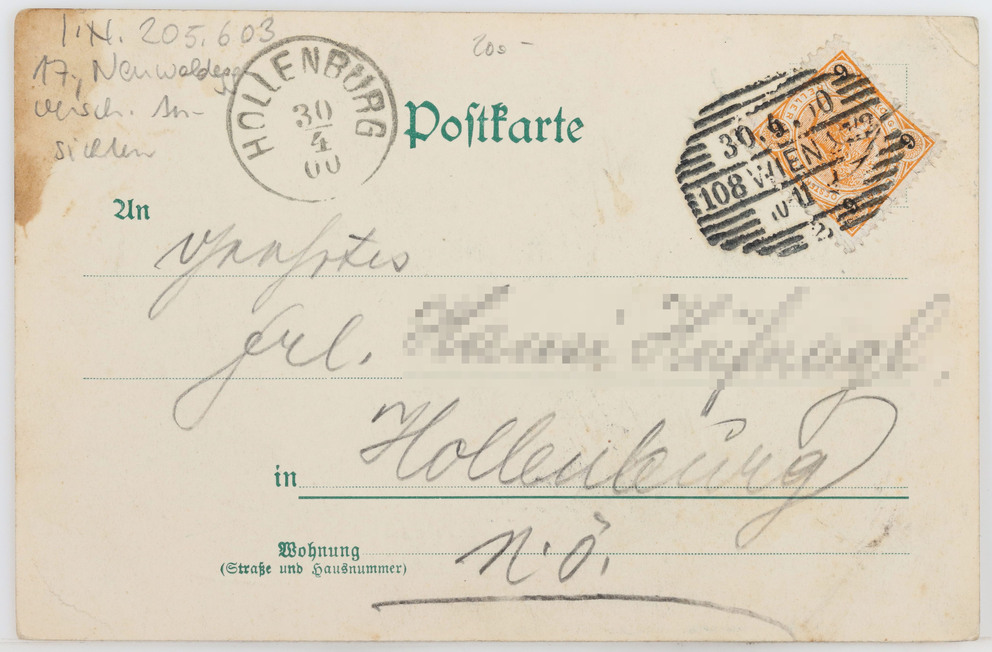 I.N. 205.603
17., Neuwaldegg
versch. An-
sichten
200-
HOLLENBURG
30
4
00
Postkarte
30.4.00
108 WIEN
11
6
6
6
An
Frl.
Hollenburg
in
N.Ö.
Wohnung
(Straße und Hausnummer)